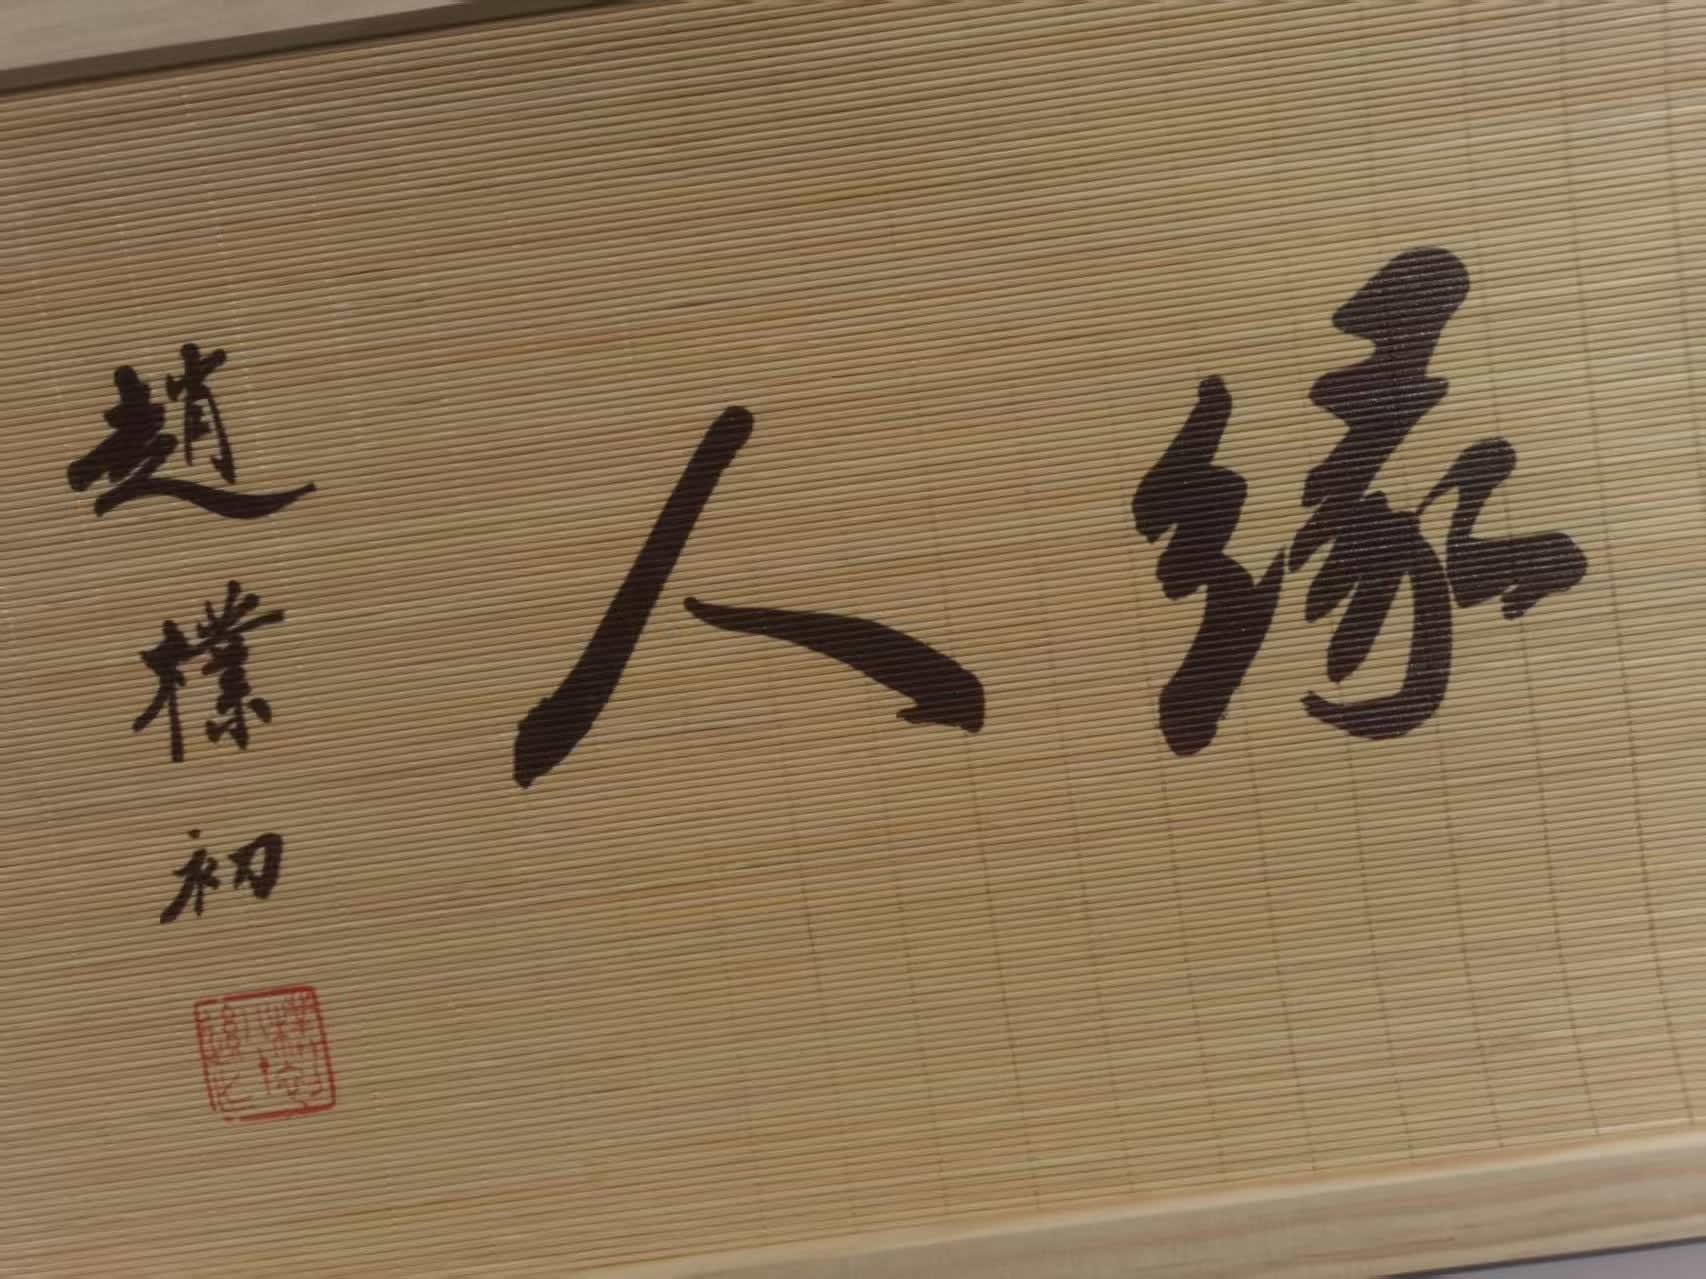 缘人
趙樸初